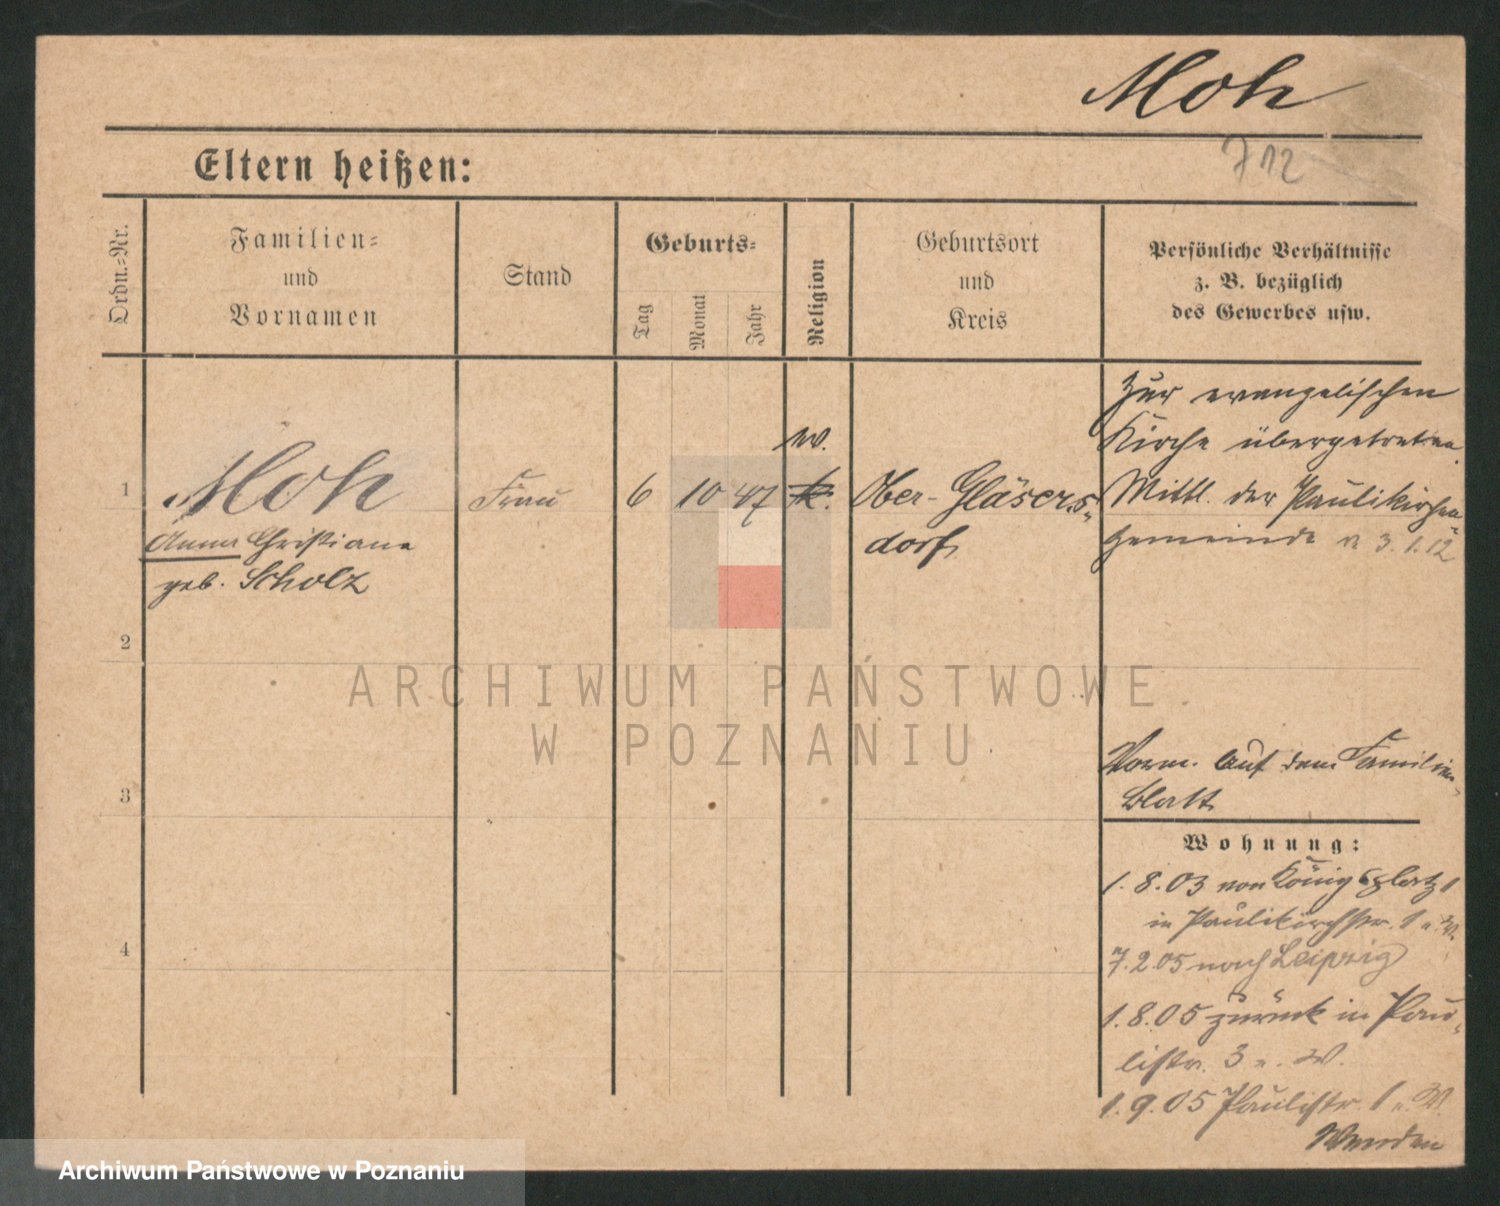 Moh
712
Eltern heißen:
Ordn.-Nr.
Familien-
und
Vornamen
Stand
Geburts-
Tag
Monat
Jahr
Religion
Geburtsort
und
Kreis
Persönliche Verhältnisse
z. B. bezüglich
des Gewerbes usw.
1
Moh
Anna Christiane
geb. Scholz
Frau
6
10
47
ev.
k.
Ober-Gläsers-
dorf
Zur evangelischen
Kirche übergetreten.
Mittl. der Paulikirchen
Gemeinde v. 3.1.12
2
3
4
Verm. auf dem Familien-
blatt
Wohnung:
1.8.03 von Königsplatz 1
in Paulikirchstr. 1 e. W.
7.2.05 nach Leipzig
1.8.05 zurück in Pau-
listr. 3 e. W.
1.9.05 Paulistr. 1 e. W.
Wenden
ARCHIWUM PAŃSTWOWE
W POZNANIU
Archiwum Państwowe w Poznaniu